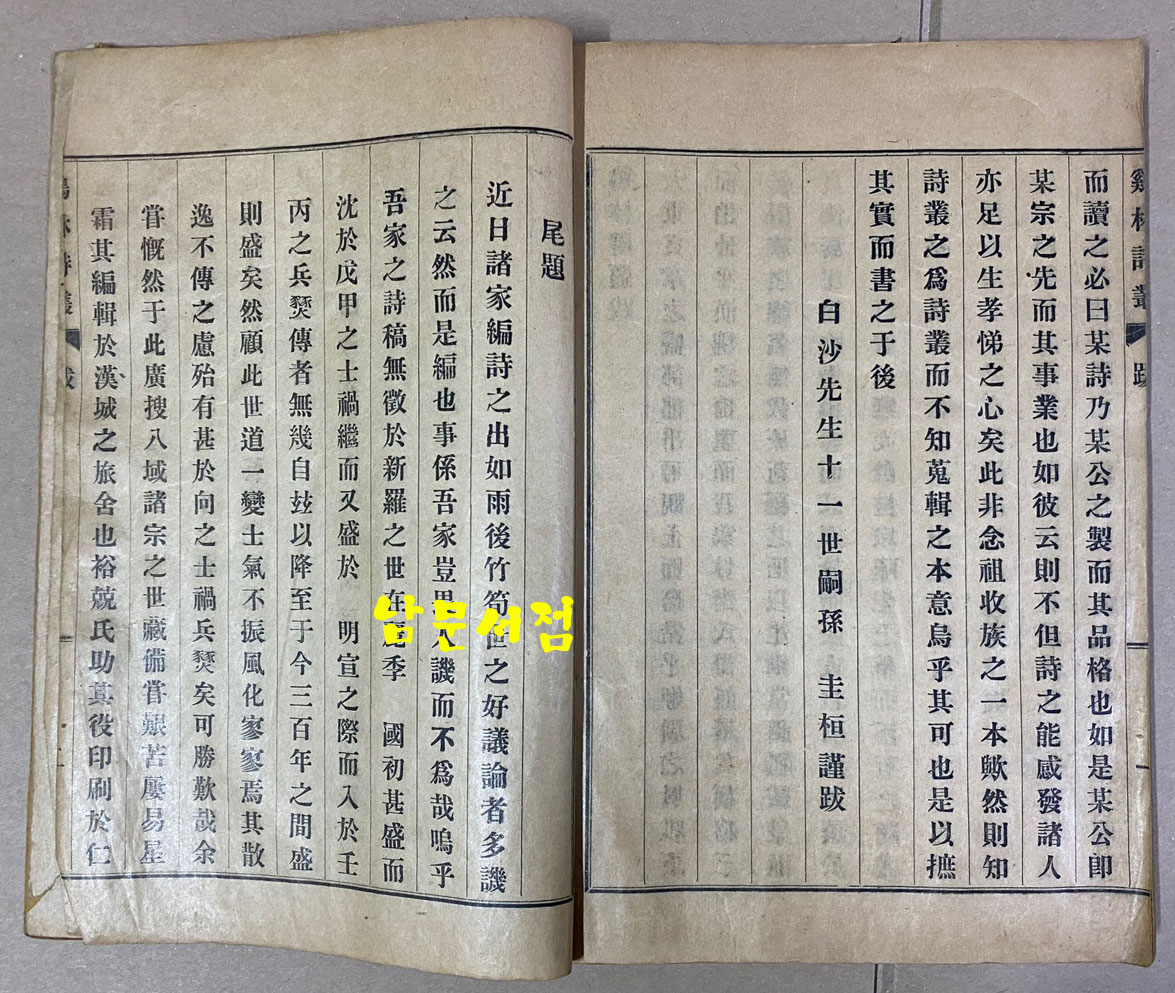 而讀之必曰某詩乃某公之製而其品格也如是某公卽
某宗之先而其事業也如彼云則不但詩之能感發諸人
亦足以生孝悌之心矣此非念祖收族之一本歟然則知
詩叢之爲詩叢而不知蒐輯之本意烏乎其可也是以摭
其實而書之于後
白沙先生十一世嗣孫 圭桓謹跋
尾題
近日諸家編詩之出如雨後竹筍世之好議論者多譏
之云然而是編也事係吾家豈畏人譏而不爲哉嗚乎
吾家之詩稿無徵於新羅之世在麗季 國初甚盛而
沈於戊甲之士禍繼而又盛於 明宣之際而入於壬
丙之兵燹傳者無幾自玆以降至于今三百年之間盛
則盛矣然顧此世道一變士氣不振風化寥寥焉其散
逸不傳之慮殆有甚於向之士禍兵燹矣可勝歎哉余
甞慨然于此廣搜八域諸宗之世藏備甞艱苦屢易星
霜其編輯於漢城之旅舍也裕兢氏助其役印刷於仁
남문서점